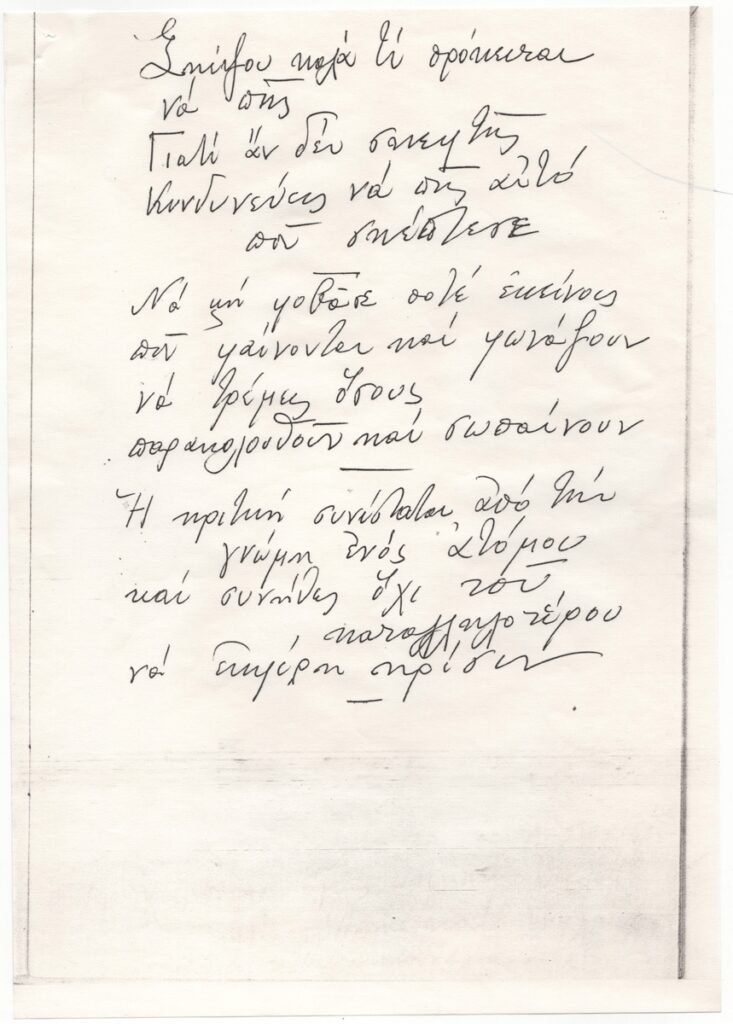 Σκέψου καλά τί πρόκειται
νά πῆς
Γιατί ἄν δέν σκεφτῆς
Κινδυνεύεις νά πῆς αὐτό
πού σκέπτεσε
Νά μή φοβᾶσε ποτέ ἐκείνους
πού φαίνονται καί φωνάζουν
νά τρέμεις ὅσους
παρακολουθοῦν καί σωπαίνουν
Ἡ κριτική συνίσταται ἀπό τήν
γνώμη ἑνός ἀτόμου
καί συνήθως ὄχι τοῦ
καταλληλοτέρου
νά ἐκφέρη κρίσιν